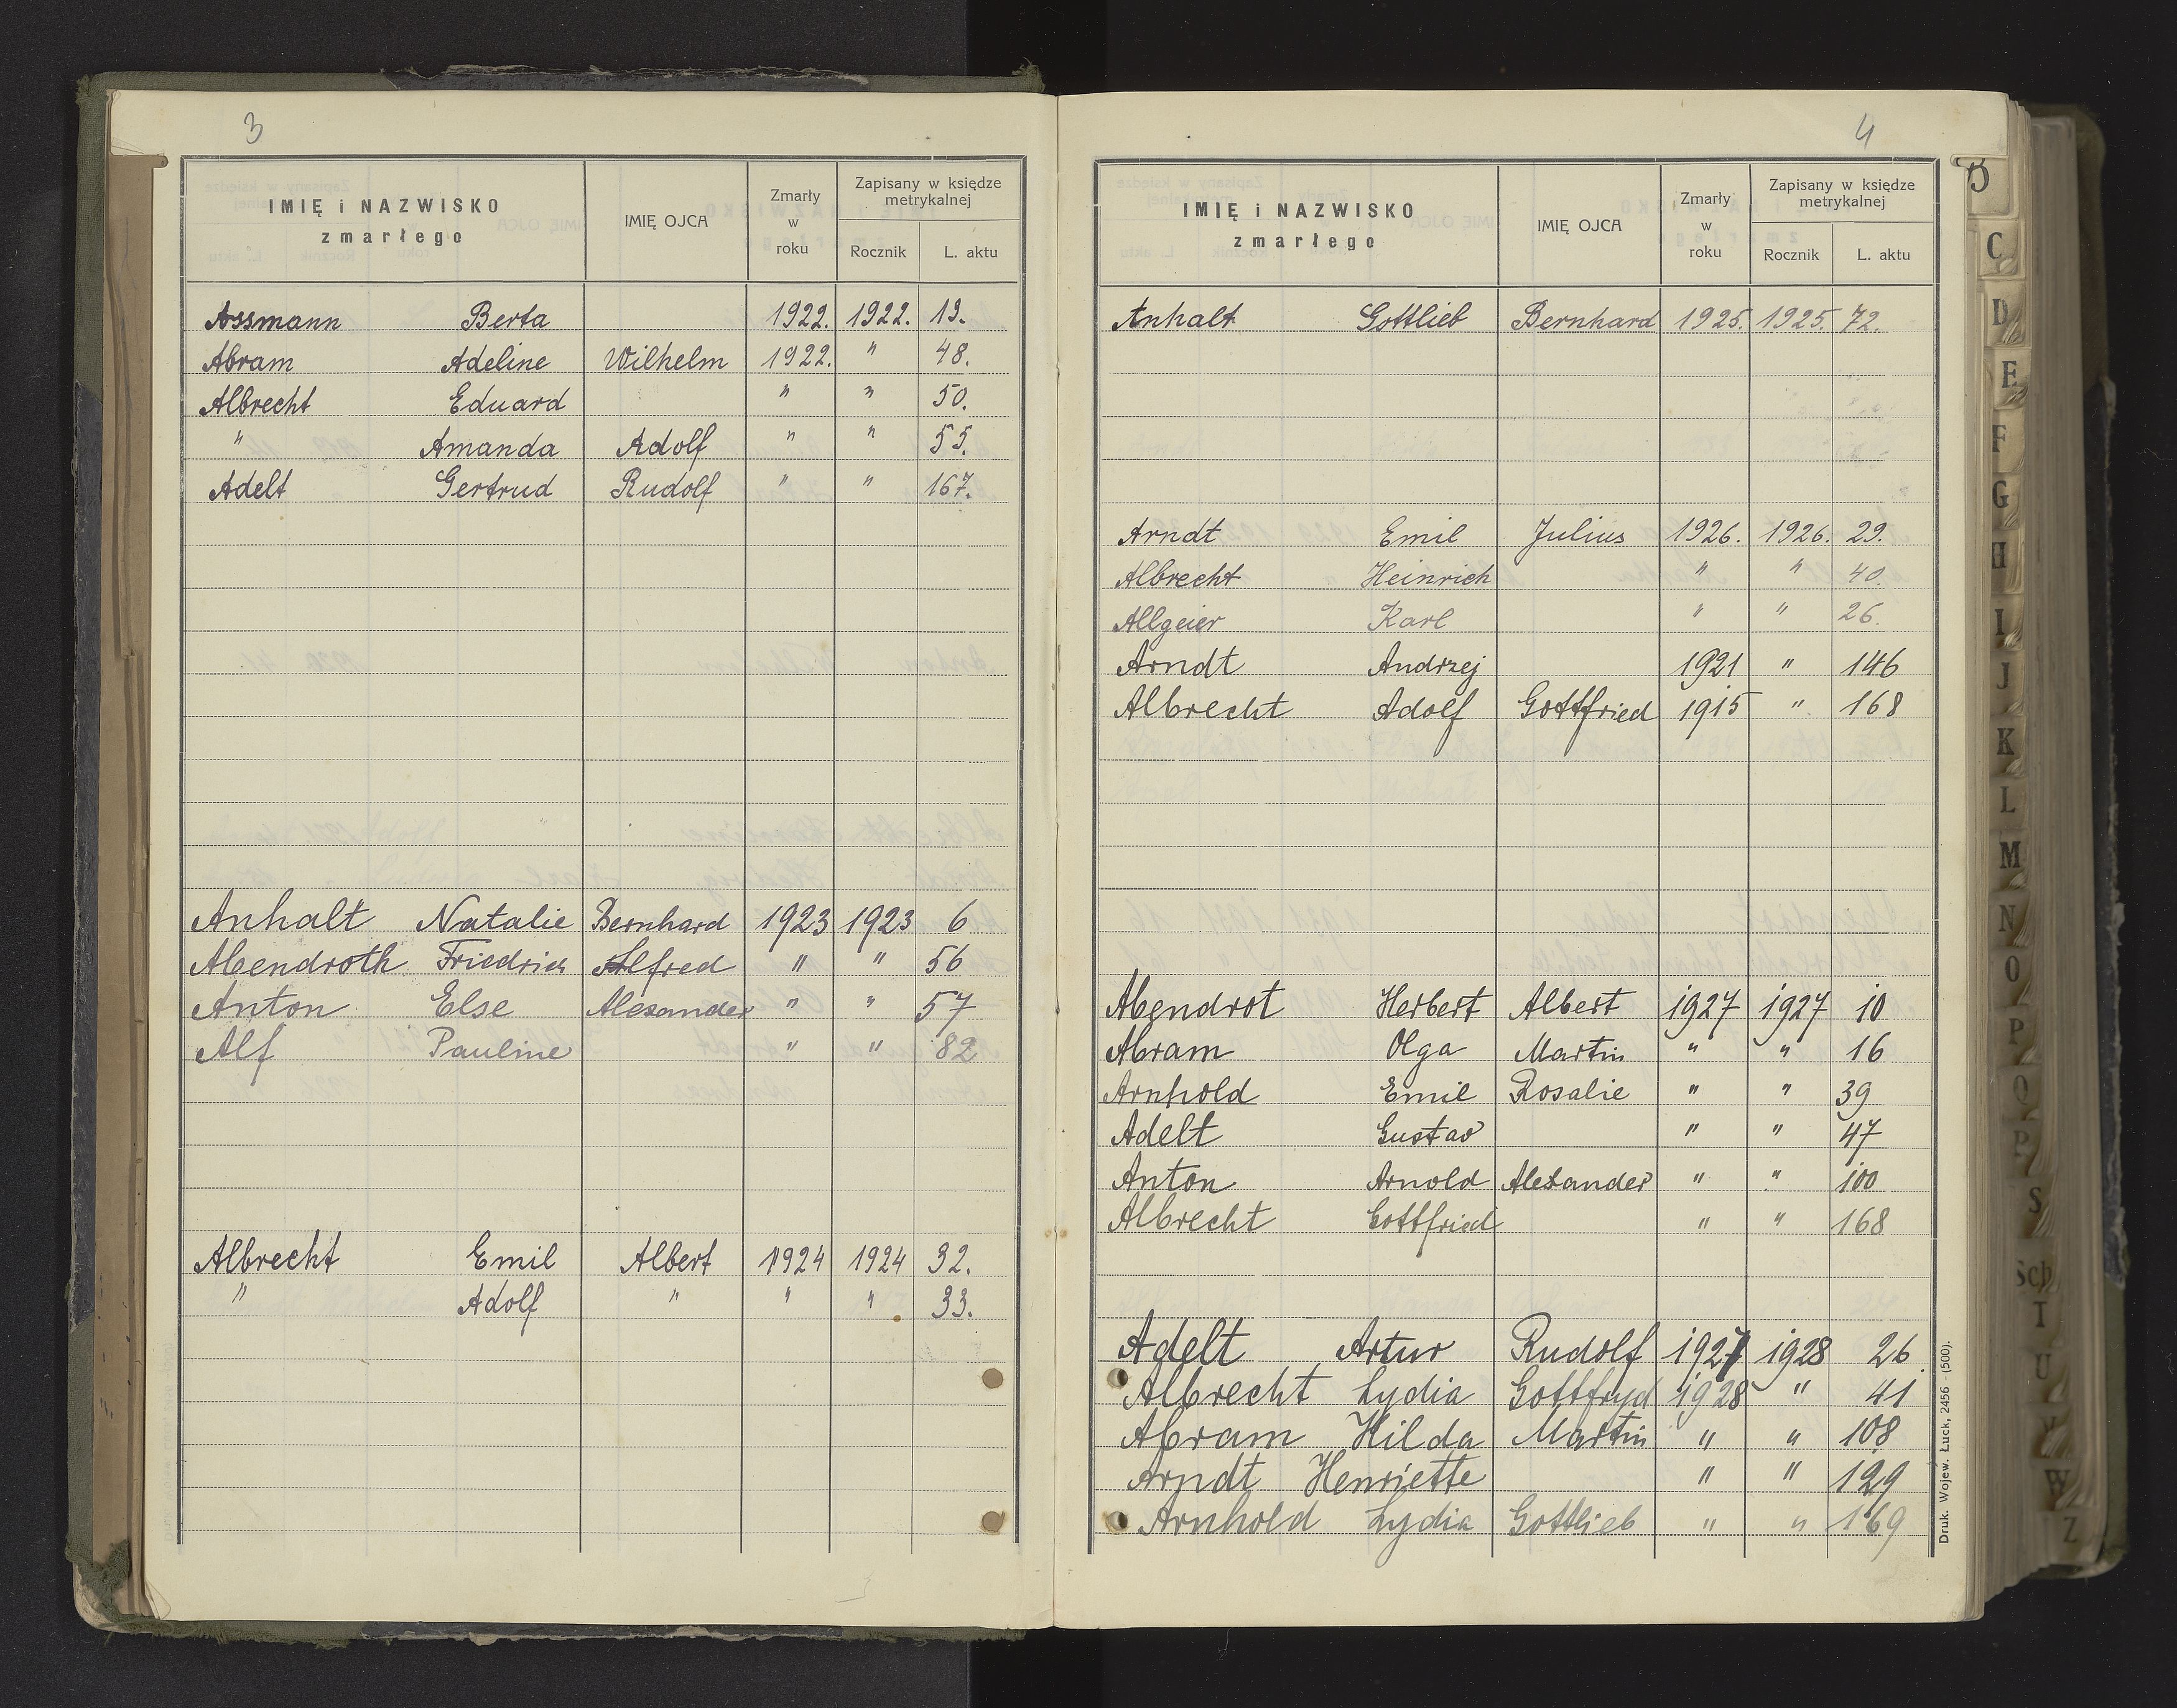 3
IMIĘ i NAZWISKO zmarłego IMIĘ OJCA Zmarły w roku Zapisany w księdze metrykalnej Rocznik L. aktu
Assmann Berta 1922. 1922. 13.
Abram Adeline Wilhelm 1922. " 48.
Albrecht Eduard " " 50.
" Amanda Adolf " " 55.
Adelt Gertrud Rudolf " " 167.
Anhalt Natalie Bernhard 1923 1923 6
Abendroth Friedrich Alfred " " 56
Anton Else Alexander " " 57
Alf Pauline " " 82
Albrecht Emil Albert 1924 1924 32.
" Adolf " " " 33.
4
IMIĘ i NAZWISKO zmarłego IMIĘ OJCA Zmarły w roku Zapisany w księdze metrykalnej Rocznik L. aktu
Anhalt Gottlieb Bernhard 1925. 1925. 72.
Arndt Emil Julius 1926. 1926. 29.
Albrecht Heinrich " " 40.
Allgeier Karl " " 26.
Arndt Andrzej 1921 " 146
Albrecht Adolf Gottfried 1915 " 168
Abendrot Herbert Albert 1927 1927 10
Abram Olga Martin " " 16
Arnhold Emil Rosalie " " 39
Adelt Gustav " " 47
Anton Arnold Alexander " " 100
Albrecht Gottfried " " 168
Adelt Artur Rudolf 1927 1928 26
Albrecht Lydia Gottfryd 1928 " 41
Abram Hilda Martin " " 108
Arndt Henriette " " 129
Arnhold Lydia Gottlieb " " 169
Druk. Wojew. Łuck, 2456 - (500).
B
C
D
E
F
G
H
I
J
K
L
M
N
O
P
S
Sch
T
U
W
Z